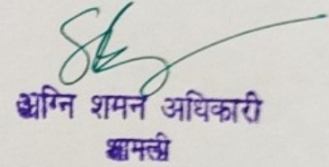 अग्नि शमन अधिकारी
शामली